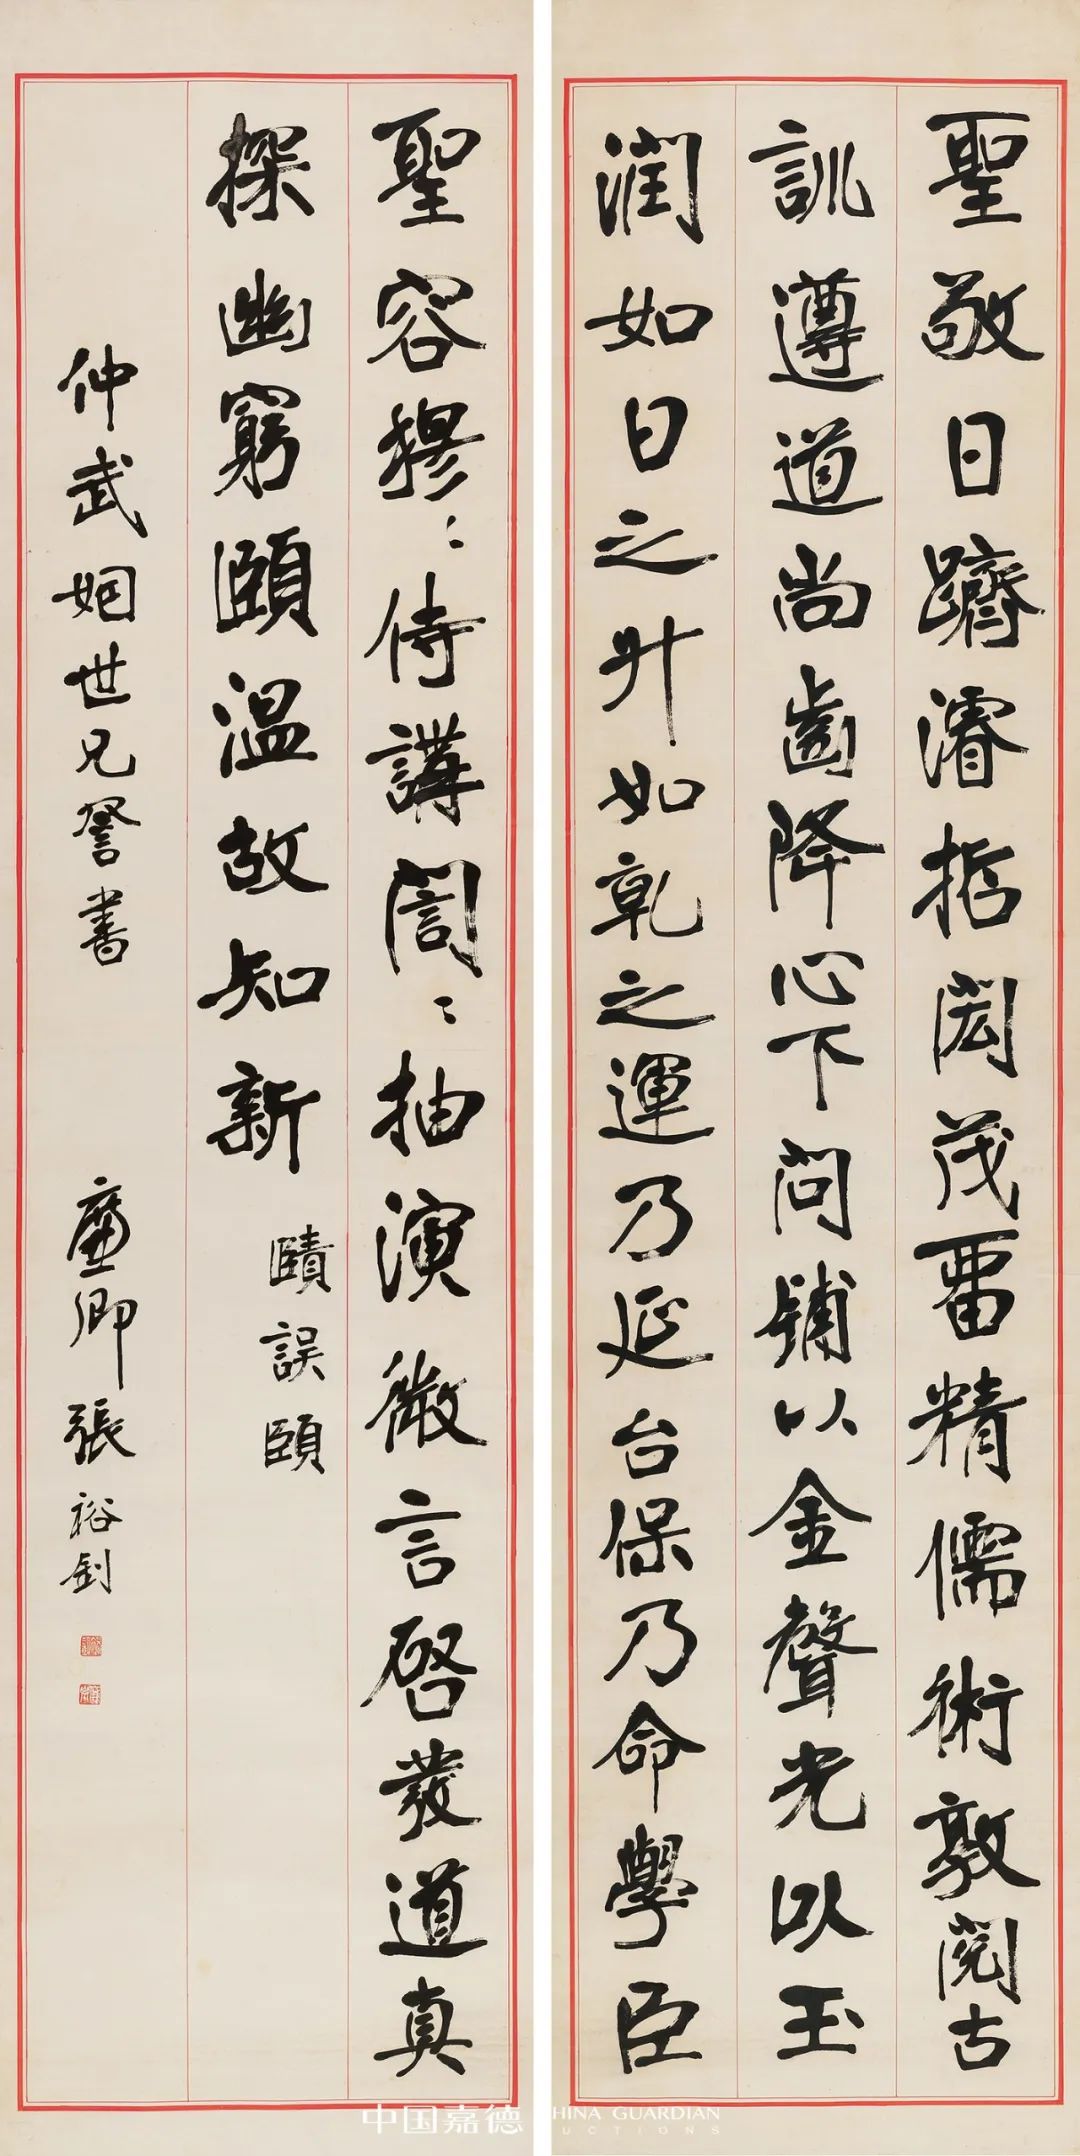 聖敬日躋濬哲閎茂畱精儒術敦閱古
訓遵道尚齒降心下問鋪以金聲光以玉
潤如日之升如乾之運乃延台保乃命學臣
聖容穆〻侍講誾〻抽演微言啓發道真
探幽窮頤溫故知新
賾誤頤
仲武姻世兄詧書 廉卿張裕釗
中国嘉德
HINA GUARDIAN
UCTIONS